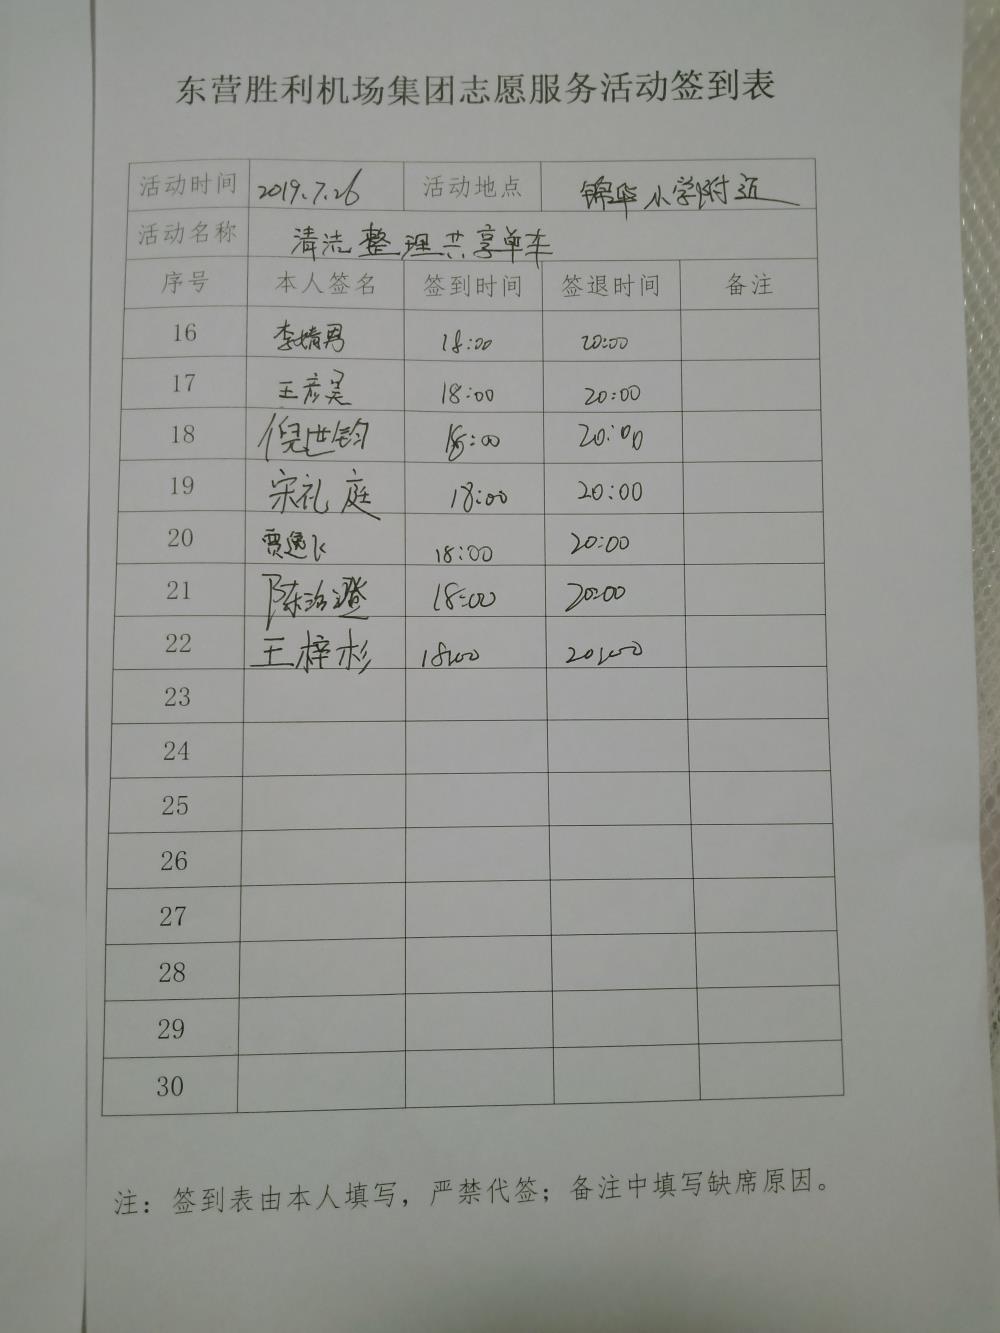 东营胜利机场集团志愿服务活动签到表
活动时间 2019.7.26 活动地点 锦华小学附近
活动名称 清洁整理共享单车
序号 本人签名 签到时间 签退时间 备注
16 李婧男 18:00 20:00
17 王彦昊 18:00 20:00
18 倪世钧 18:00 20:00
19 宋礼庭 18:00 20:00
20 贾逸飞 18:00 20:00
21 陈治澄 18:00 20:00
22 王梓杉 18:00 20:00
23
24
25
26
27
28
29
30
注：签到表由本人填写，严禁代签；备注中填写缺席原因。